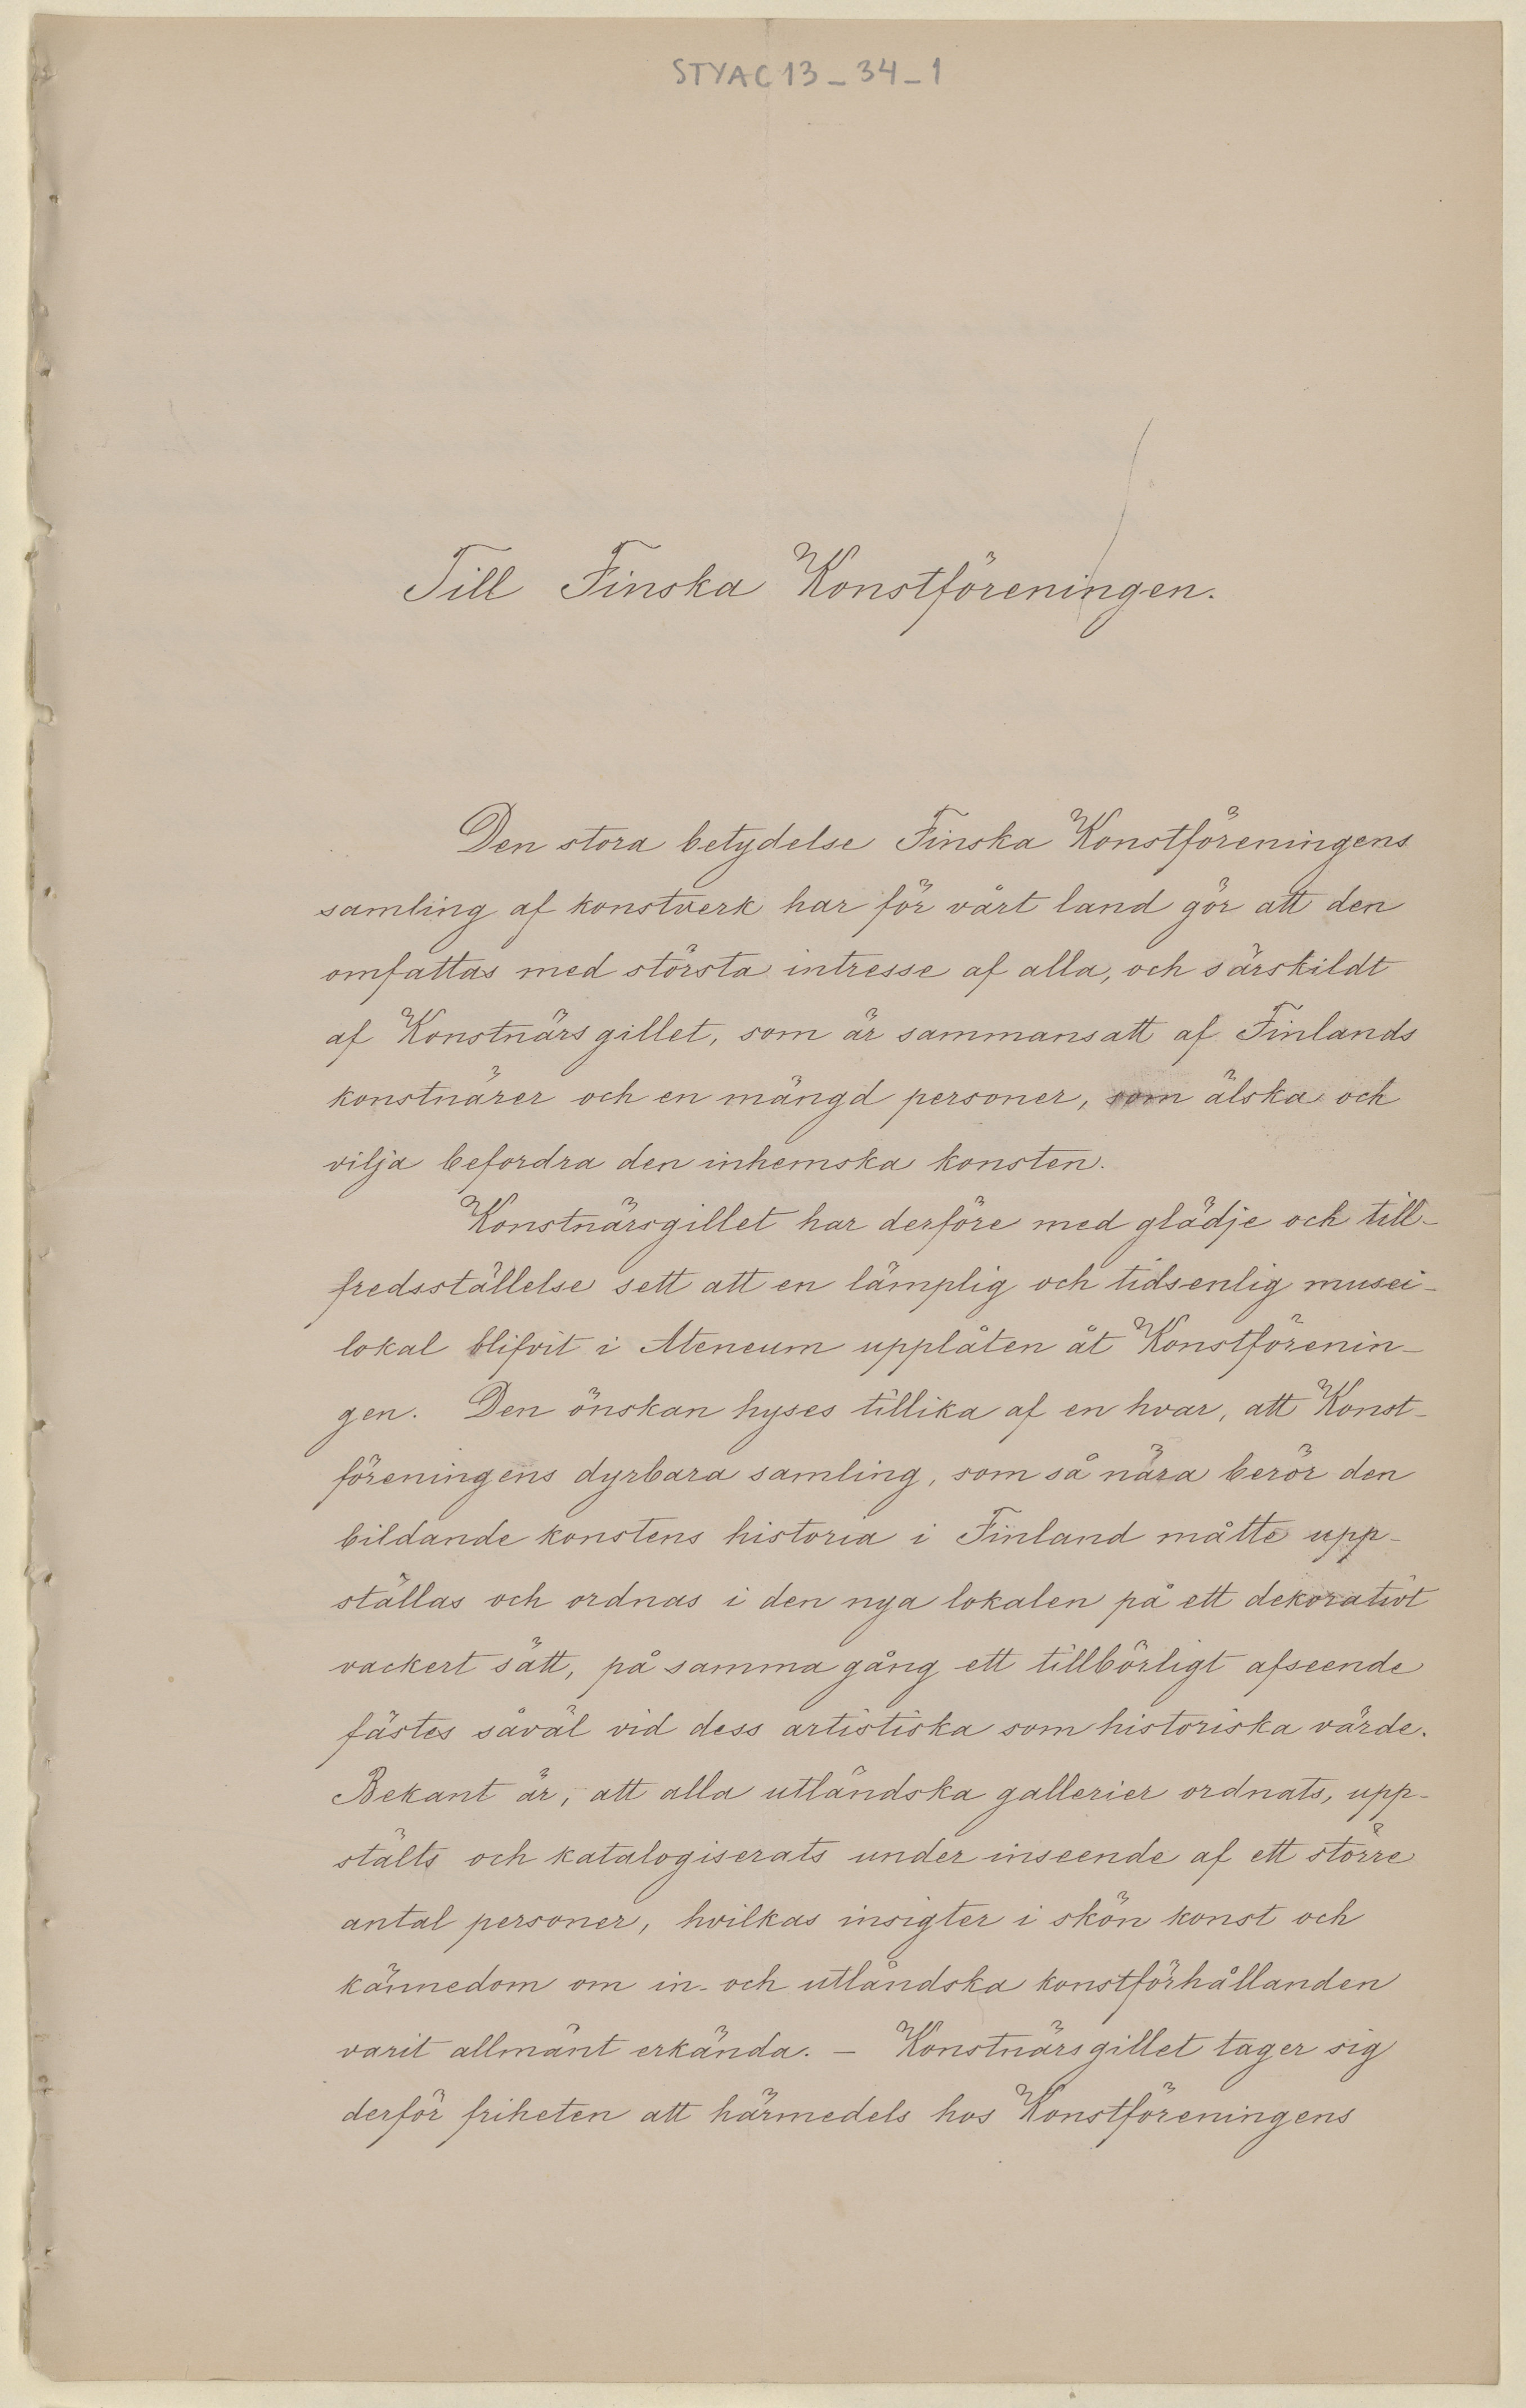 STYAC13_34_1
Till Finska Konstföreningen.
Den stora betydelse Finska Konstföreningens
samling af konstverk har för vårt land gör att den
omfattas med största intresse af alla, och särskildt
af Konstnärsgillet, som är sammansatt af Finlands
konstnärer och en mängd personer, som älska och
vilja befordra den inhemska konsten.
Konstnärsgillet har derföre med glädje och till-
fredsställelse sett att en lämplig och tidsenlig musei-
lokal blifvit i Ateneum upplåten åt Konstförenin-
gen. Den önskan hyses tillika af en hvar, att Konst-
föreningens dyrbara samling, som så nära berör den
bildande konstens historia i Finland måtte upp-
ställas och ordnas i den nya lokalen på ett dekorativt
vackert sätt, på samma gång ett tillbörligt afseende
fästes såväl vid dess artistiska som historiska värde.
Bekant är, att alla utländska gallerier ordnats, upp-
stälts och katalogiserats under inseende af ett större
antal personer, hvilkas insigter i skön konst och
kännedom om in- och utländska konstförhållanden
varit allmänt erkända. – Konstnärsgillet tager sig
derför friheten att härmedels hos Konstföreningens